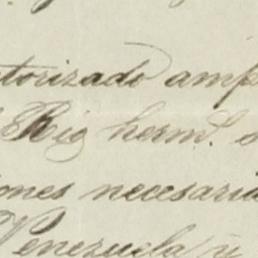 torizado amp
Rio herm.
ones necesaria
Venezuela y